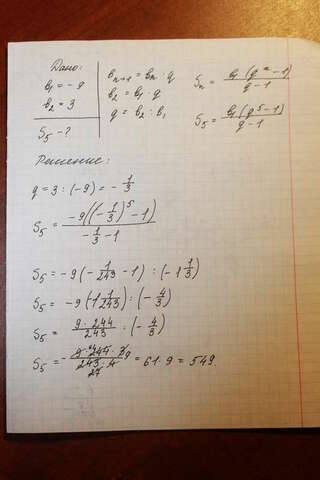 Дано:
b₁ = -9
b₂ = 3
S₅ - ?
bₙ₊₁ = bₙ · q
b₂ = b₁ · q
q = b₂ : b₁
Sₙ = b₁(qⁿ - 1) / (q - 1)
S₅ = b₁(q⁵ - 1) / (q - 1)
Решение:
q = 3 : (-9) = - 1/3
S₅ = -9((-1/3)⁵ - 1) / (-1/3 - 1)
S₅ = -9(-1/243 - 1) : (-1 1/3)
S₅ = -9(-1 1/243) : (-4/3)
S₅ = 9 · 244 / 243 : (-4/3)
S₅ = - 9 · 244 · 3 / 243 · 4 = 61 · 9 = 549.